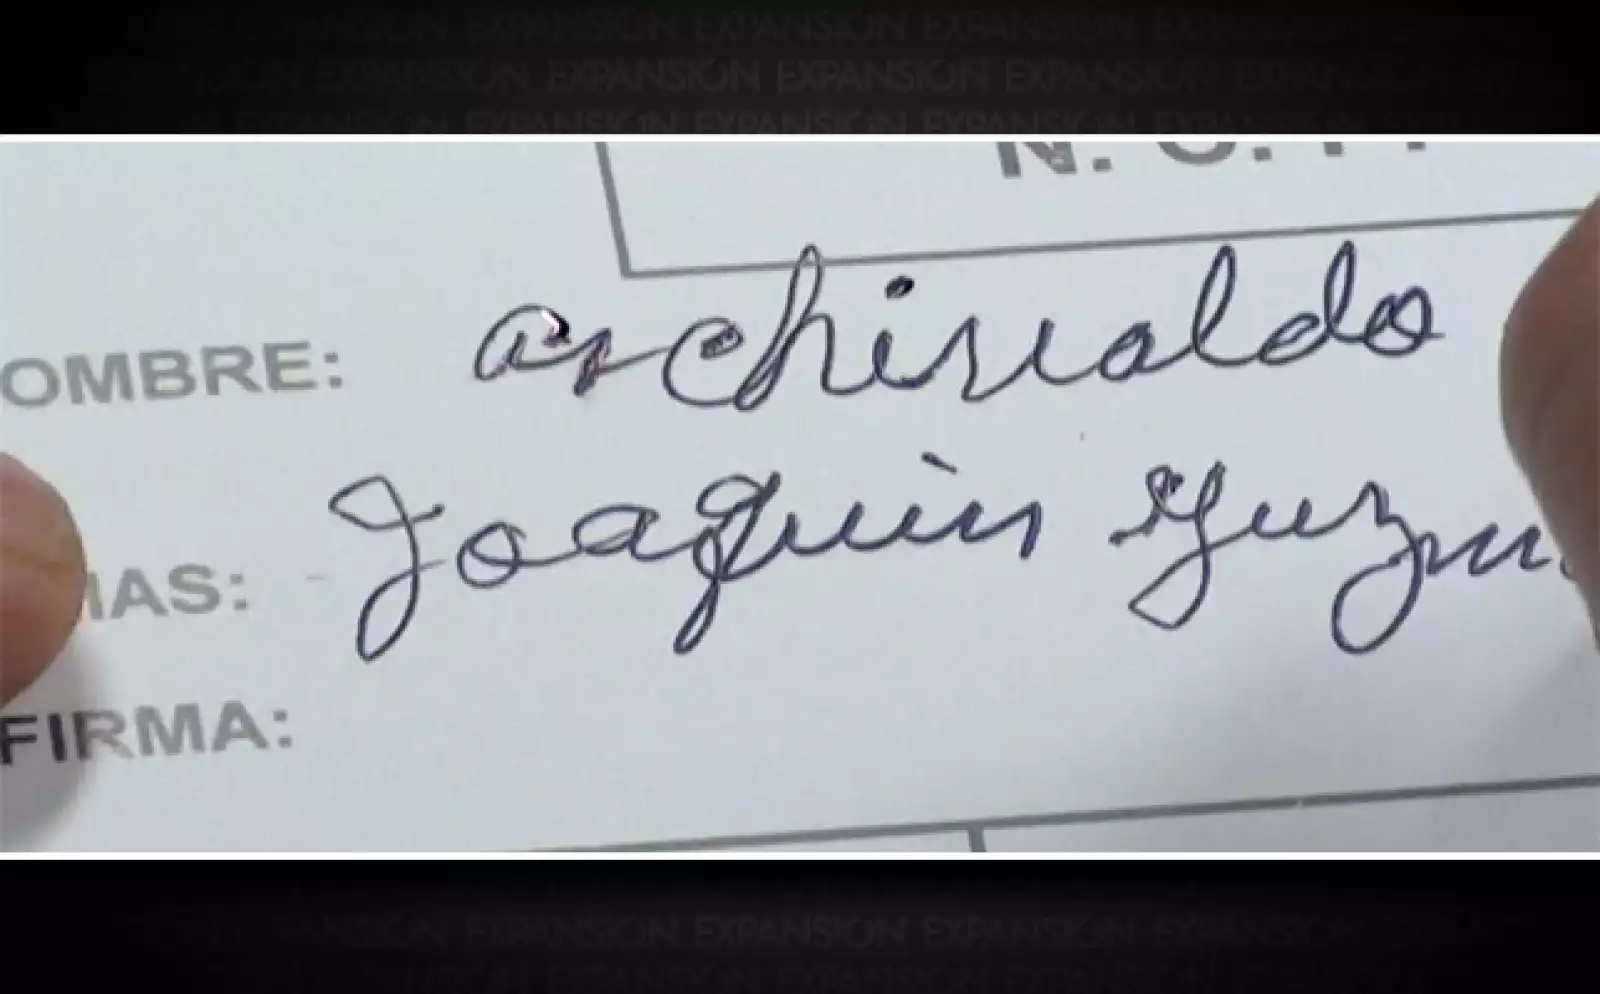 EXPANSIÓN EXPANSIÓN EXPANSIÓN EXPANSIÓN
EXPANSIÓN EXPANSIÓN EXPANSIÓN EXPANSIÓN
EXPANSIÓN EXPANSIÓN EXPANSIÓN EXPANSIÓN
OMBRE: archivaldo
Joaquín Guzm
IAS:
FIRMA:
EXPANSIÓN EXPANSIÓN EXPANSIÓN EXPANSIÓN